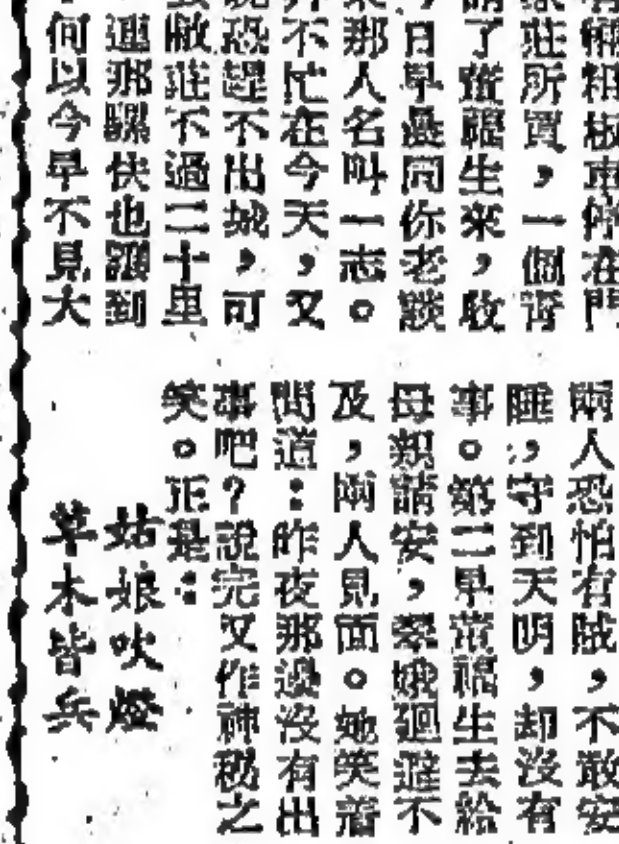 有輛粗板車停在門
莊所買，一個膏
了董福生來，收
今日早晨同你老談
那人名叫一志。
不忙在今天，又
說恐趕不出城，可
敝莊不過二十里
連那騾伕也讓到
何以今早不見大
兩人恐怕有賊，不敢安
睡，守到天明，却沒有
事。第二早董福生去給
母親請安，翠娥廻避不
及，兩人見面。她笑着
問道：昨夜那邊沒有出
事吧？說完又作神秘之
笑。正是：
姑娘吹燈
草木皆兵